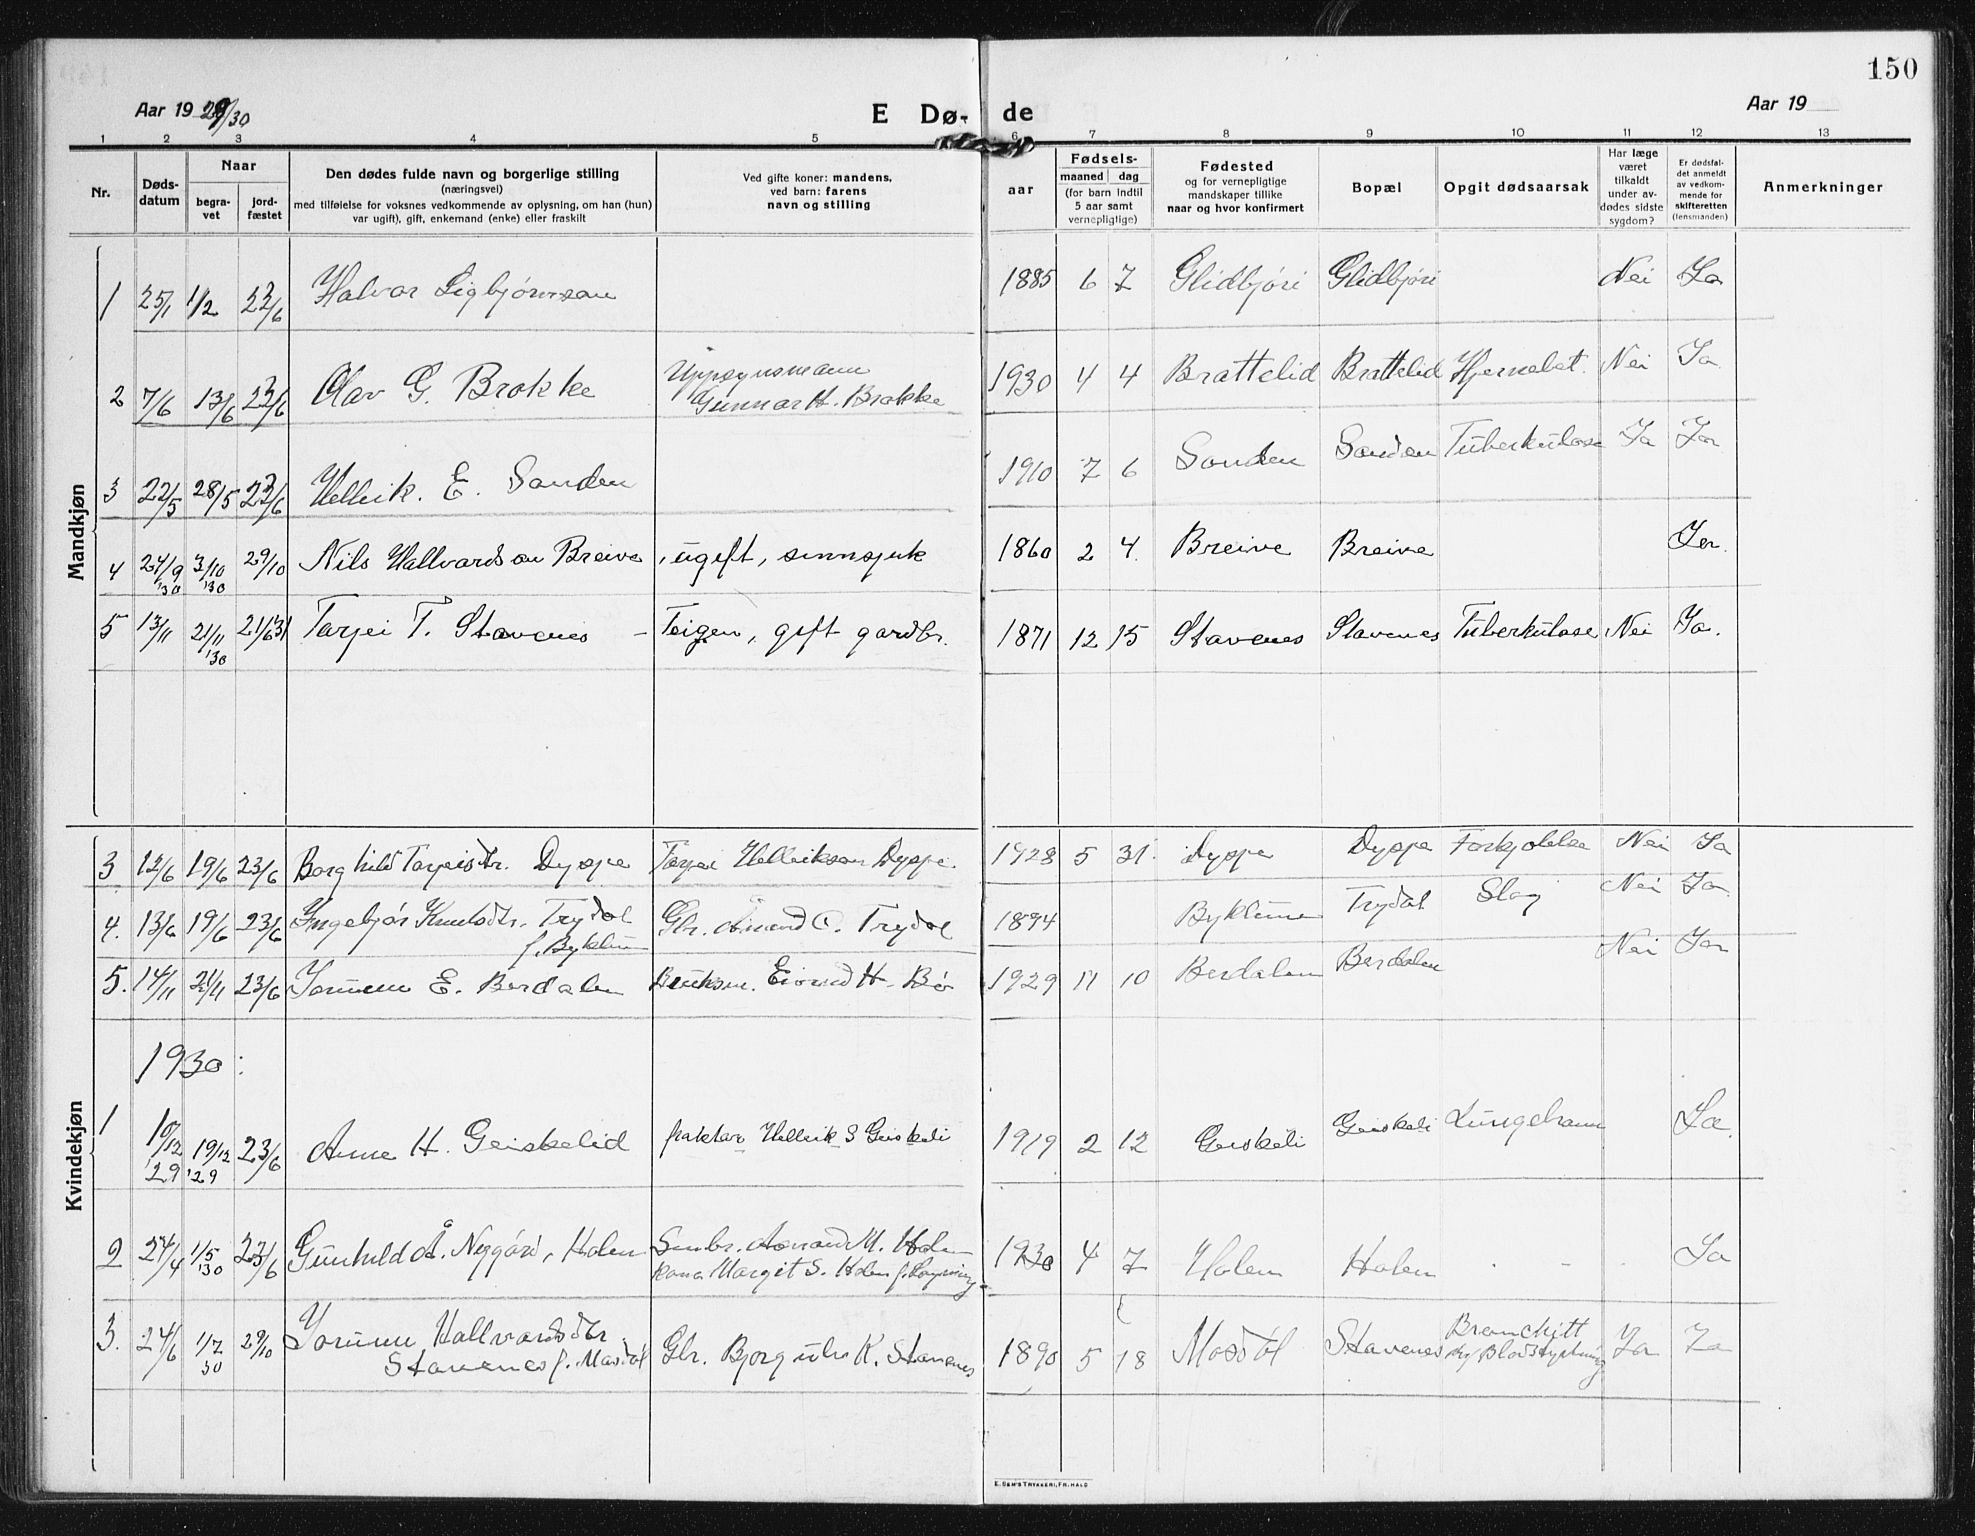 150
Aar 19 29/30
E Dø- de
Aar 19
1 2 3 4 5 6 7 8 9 10 11 12 13
Nr.
Døds-
datum
Naar
begra-
vet
jord-
fæstet
Den dødes fulde navn og borgerlige stilling
(næringsvei)
med tilføielse for voksnes vedkommende av oplysning, om han (hun)
var ugift), gift, enkemand (enke) eller fraskilt
Ved gifte koner: mandens,
ved barn: farens
navn og stilling
aar
Fødsels-
maaned dag
(for barn indtil
5 aar samt
vernepligtige)
Fødested
og for vernepligtige
mandskaper tillike
naar og hvor konfirmert
Bopæl
Opgit dødsaarsak
Har læge
været
tilkaldt
under av-
dødes sidste
sygdom?
Er dødsfal-
det anmeldt
av vedkom-
mende for
skifteretten
(lensmanden)
Anmerkninger
Mandkjøn
1 25/1 1/2 22/6 Halvor Sigbjørnson 1885 6 7 Glidbjøri Glidbjøri Nei Ja
2 7/6 13/6 22/6 Olav G. Brokke Uppsynsmann
Gunnar H. Brokke 1930 4 4 Brattelid Brattelid Hjernebet. Nei Ja
3 22/5 28/5 22/6 Helleik. E. Sanden 1910 7 6 Sanden Sanden Tuberkulose Ja Ja
4 24/9 '30 3/10 '30 29/10 Nils Hallvardson Breive, ugift, sinnsjuk 1860 2 4. Breive Breive Ja.
5 13/11 21/11 '30 21/6 31 Tarjei T. Stavenes - Teigen, gift gardbr. 1871 12 15 Stavenes Stavenes Tuberkulose Nei Ja.
Kvindekjøn
3 12/6 19/6 23/6 Borghild Tarjeisdtr. Dyspe Tarjei Helleikson Dyspe. 1928 5 31. Dyspe Dyspe Forkjølelse Nei Ja
4. 13/6 19/6 23/6 Ingebjør Knutsdtr. Trydal
f. Byklum Gbr. Åmund O. Trydal 1894 Byklum Trydal Slag Nei Ja
5. 14/11 21/11 23/6 Jorunn E. Berdalen Bruksm. Eivind H. Bø 1929 11 10 Berdalen Berdalen Nei Ja
1930:
1 10/12 '29 19/12 '29 23/6 Anne H. Geiskelid Helleik S Geiskeli 1919 2 12 Geiskeli Geiskeli Ja.
2 24/4 1/5 '30 23/6 Gunhild Å. Nygård, Holen Smbr. Åmund M. Holen
kona Margit S. Holen f. 1930 4 7 Holen Holen - - - Ja
3. 24/6 1/7 30 29/10 Jorunn Hallvardsdtr.
Stavenes f. Mosdøl Gbr. Bjorgulv K. Stavenes 1890 5 18 Mosdøl Stavenes Bronchitt
og Blodstyrtning Ja Ja
E. SEM'S TRYKKERI, FR. HALD